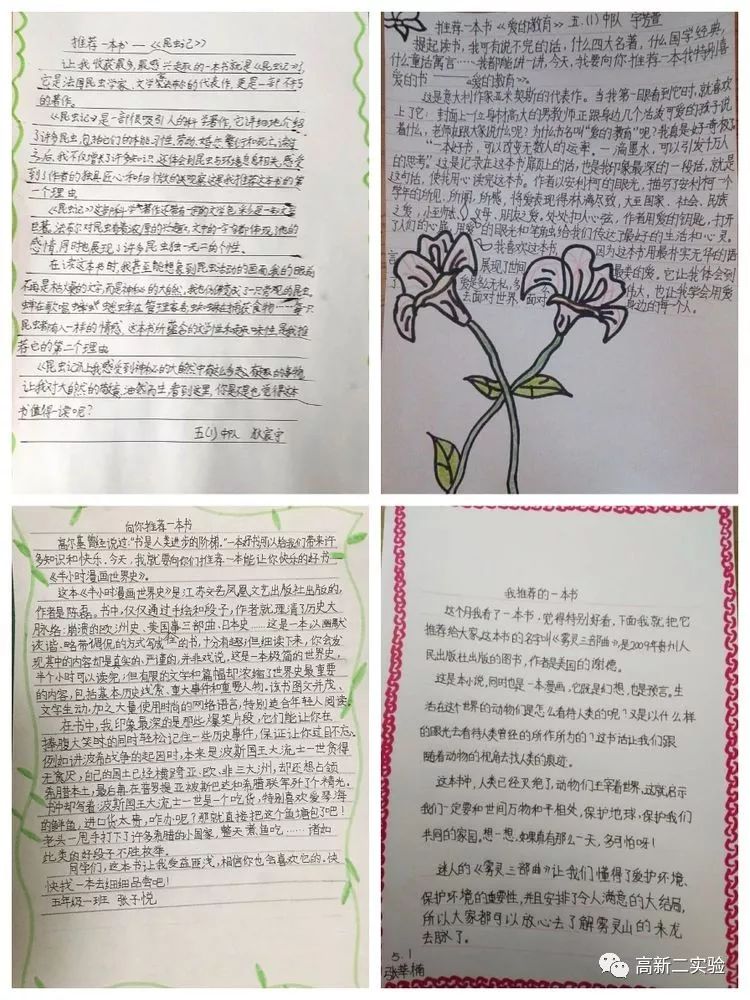 推荐一本书——《昆虫记》
让我收获最多，最感兴趣的一本书就是《昆虫记》了，
它是法国昆虫学家、文学家法布尔的代表作，更是一部不朽
的著作。
《昆虫记》是一部很吸引人的科学著作，它详细地介绍
了许多昆虫，包括它们的本能、习性、劳动、婚恋、繁衍和死亡，读
之后，我不仅增长了许多知识，还体会到昆虫与环境息息相关，感受
到了作者的独具匠心和细微的观察，这是我推荐这本书的第
一个理由。
《昆虫记》这部科学著作还带有一定的文学色彩，是一部文学
巨著，法布尔对昆虫有着浓厚的兴趣，文中的一字一句都体现了他的
感情，同时也展现了许多昆虫独一无二的个性。
在读这本书时，我甚至能想象到昆虫活动的画面，我的眼前
不再是枯燥的文字，而是神秘的大自然，我也仿佛变成了一只
蝉在歌唱
人一样的情感，这本书所蕴含的文学性和趣味性是我推
荐它的第二个理由。
《昆虫记》让我感受到神秘的大自然中有这么多
让我对大自然的敬意油然而生，看到这里，你是不是也觉得这本
书值得一读呢？
五（1）中队 耿宸宇
推荐一本书《爱的教育》五.（1）中队 宇芳萱
提起读书，我可有说不完的话，什么四大名著，什么国学经典，
什么童话寓言……我都能讲一讲，今天，我要向你推荐一本我特别喜
爱的书——《爱的教育》。
这是意大利作家亚米契斯的代表作。当我第一眼看到它时，就喜欢
上了它：封面上一位身材高大的男教师正跟身边几个活泼可爱的孩子说
着什么，老师在跟大家说什么呢？为什么书名叫“爱的教育”呢？我真是好奇极了
“一本好书，可以改变无数人的运率。一滴墨水，可以引发千万人
的思考。”这是记录在这本书扉页上的话，也是我印象最深的一段话，就是
这句话，使我用心读完这本书。作者以安利柯的眼光，描写了安利柯一个
学年的所见、所闻、所感，将爱表现得淋漓尽致，大至国家、社会、民族
之爱，小至师长、父母、朋友之爱，处处扣人心弦，作者用爱的钥匙，打开
了人们的心扉，用爱的眼光和笔触给我们传达了最好的生活和心灵。
我喜欢这本书， 因为这本书用最朴实无华的语
言 展现了世间 最美的爱，它让我体会到
了 爱是弘无私，多 伟大，也让我学会用爱
去面对世界、面对 身边的每个人。
向你推荐一本书
高尔基曾经说过：“书是人类进步的阶梯。”一本好书可以给我们带来许
多知识和快乐，今天，我就要向你们推荐一本能让你快乐的好书——
《半小时漫画世界史》。
这本《半小时漫画世界史》是江苏文艺凤凰文艺出版社出版的，
作者是陈磊。书中，仅仅通过手绘和段子，作者就理清了历史大
脉络：崩溃的欧洲史、美国三部曲、日本史……这是一本以幽默
诙谐、略带调侃的方式写成的书，十分有趣；但细读下来，你会发
现其中的内容却是真实的、严谨的，并非戏说，这是一本极简的世界史，
半个小时可以读完；但有限的文字和篇幅却浓缩了世界史最重要
的内容，包括基本历史线索、重大事件和重要人物。该书图文并茂、
文字生动，加之大量使用时尚的网络语言，特别适合年轻人阅读。
在书中，我印象最深的是那些爆笑片段，它们能让你在
捧腹大笑时的同时轻松记住一些历史事件，保证让你过目不忘。
例如：讲波希战争的起因时，本来是波斯国王大流士一世贪得
无厌，自己的国土已经横跨亚、欧、非三大洲，却还想占领
希腊本土，最后在普罗提亚被斯巴达和希腊联军歼了个精光。
书中却写着：波斯国王大流士一世是一个吃货，特别喜欢爱琴海
的鲜鱼，进口货太贵，咋办呢？那就直接把这个鱼塘包了吧！
老头一甩手打下了许多希腊的小国家，整天煮鱼吃……诸如
此类的好段子不胜枚举。
同学们，这本书让我受益匪浅，相信你也会喜欢它的，快
快找一本去细细品尝吧！
五年级一班 张子悦
我推荐的一本书
这个月我看了一本书，觉得特别好看，下面我就把它
推荐给大家。这本书的名字叫《雾灵三部曲》，是2009年贵州人
民出版社出版的图书，作者是英国的谢德。
这是本小说，同时也是一本漫画，它既是幻想，也是预言。生
活在这个世界的动物们是怎么看待人类的呢？又是以什么样
的眼光去看待人类曾经的所作所为的？这书话让我们跟
随着动物的视角去找人类的痕迹。
这本书中，人类已经灭绝了，动物们主宰着世界，这就启示
我们一定要和世间万物和平相处，保护地球，保护我们
共同的家园。想一想，如果真有那么一天，多可怕呀！
迷人的《雾灵三部曲》让我们懂得了爱护环境、
保护环境的重要性，并且安排了令人满意的大结局，
所以大家都可以放心去了解雾灵山的来龙
去脉了。
5.1
张苹楠
高新二实验